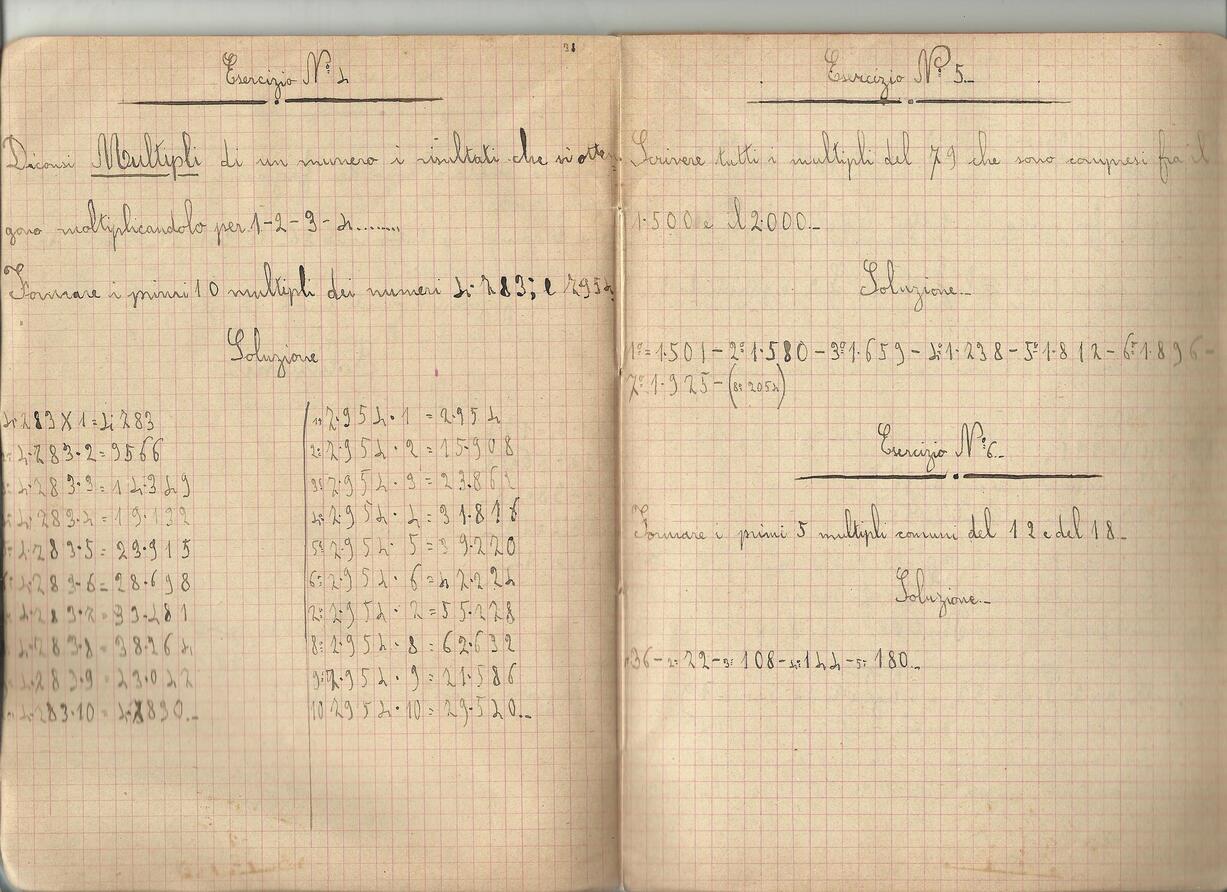 38
Esercizio Nº 4
Diconsi Multipli di un numero i risultati che si otten
gono moltiplicandolo per 1-2-3-4........
Formare i primi 10 multipli dei numeri 4.783; e 7954
Soluzione
4.783 X 1 = 4.783
4.783·2 = 9566
4.783·3 = 14.349
4.783·4 = 19.132
4.783·5 = 23.915
4.783·6 = 28.698
4.783·7 = 33.481
4.783·8 = 38.264
4.783·9 = 43.047
4.783·10 = 47.830.-
1º 7.954·1 = 7.954
2º 7.954·2 = 15.908
3º 7.954·3 = 23.862
4º 7.954·4 = 31.816
5º 7.954·5 = 39.770
6º 7.954·6 = 47.724
7º 7.954·7 = 55.678
8º 7.954·8 = 63.632
9º 7.954·9 = 71.586
10 7954·10 = 79.540.-
Esercizio Nº 5.-
Scrivere tutti i multipli del 79 che sono compresi fra il
1.500 e il 2.000.-
Soluzione.-
1º = 1.501 - 2º 1.580 - 3º 1.659 - 4º 1.738 - 5º 1.817 - 6º 1.896 -
7º 1.975 - (8º 2054)
Esercizio Nº 6.-
Formare i primi 5 multipli comuni del 12 e del 18.-
Soluzione.-
36 - 2º 72 - 3º 108 - 4º 144 - 5º 180.-